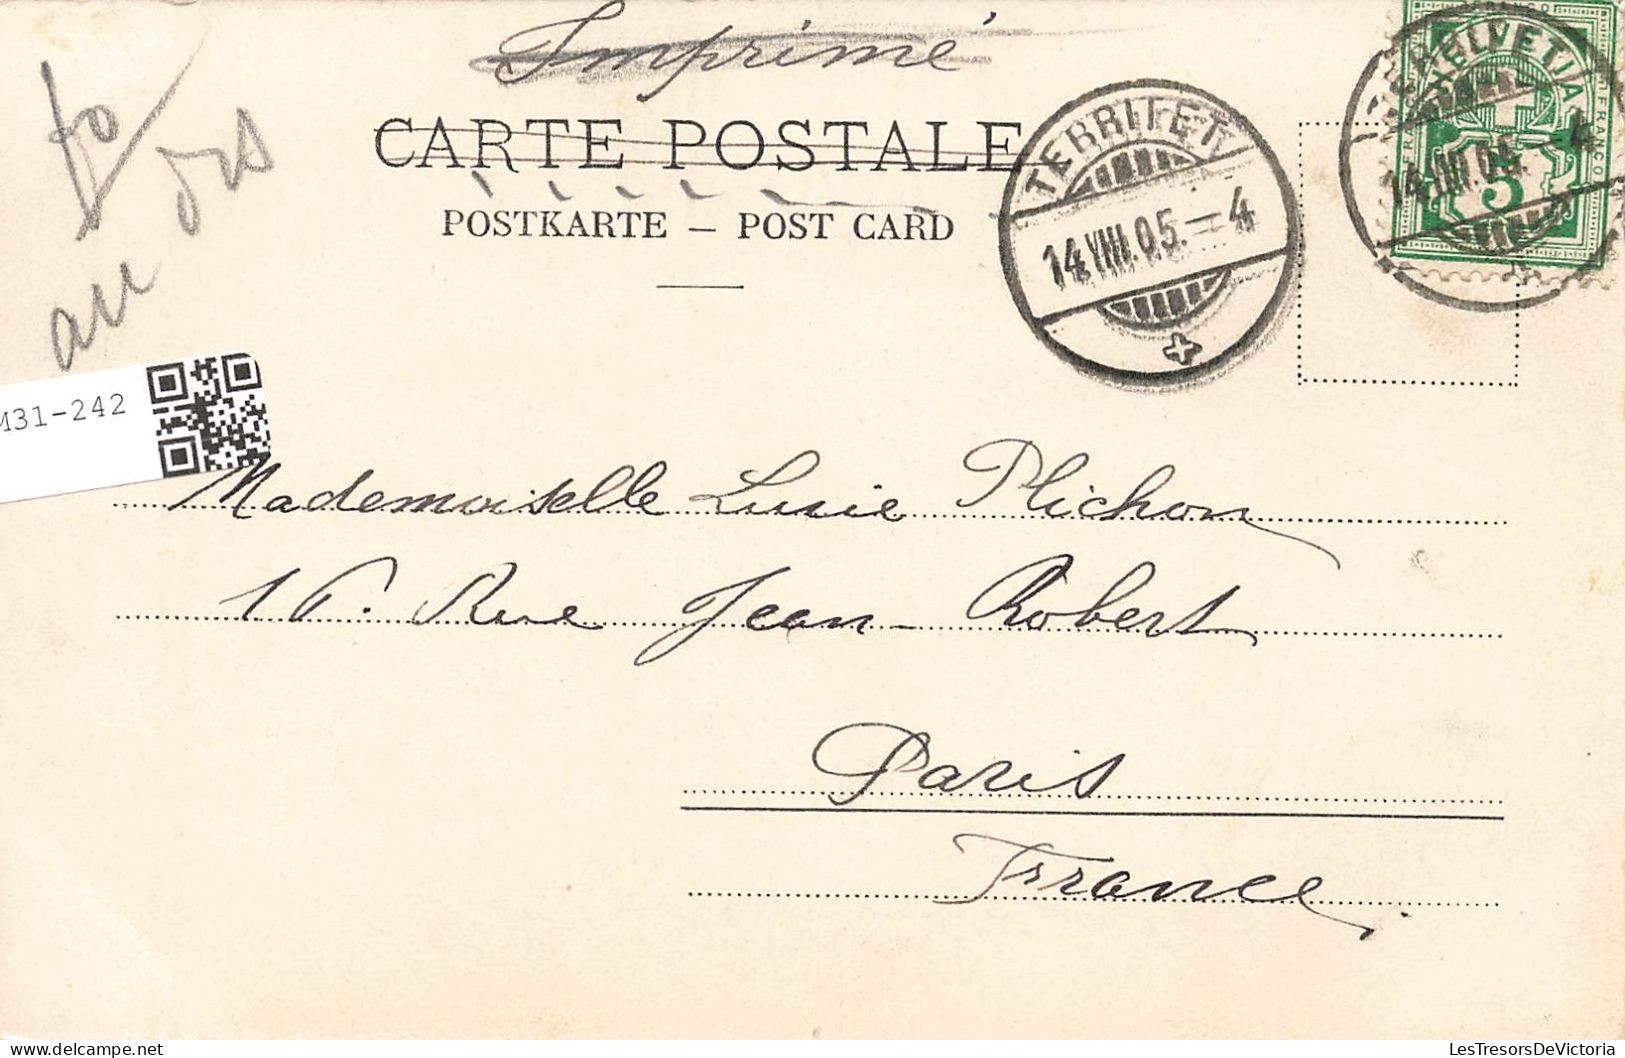 Imprimé
CARTE POSTALE
POSTKARTE – POST CARD
TERRITET
14.VIII.05.–4
HELVETIA
FRANCO
5
14.VIII.05.–4
au dos
M31-242
Mademoiselle Lucie Plichon
Rue Jean-Robert
Paris
France
LesTresorsDeVictoria